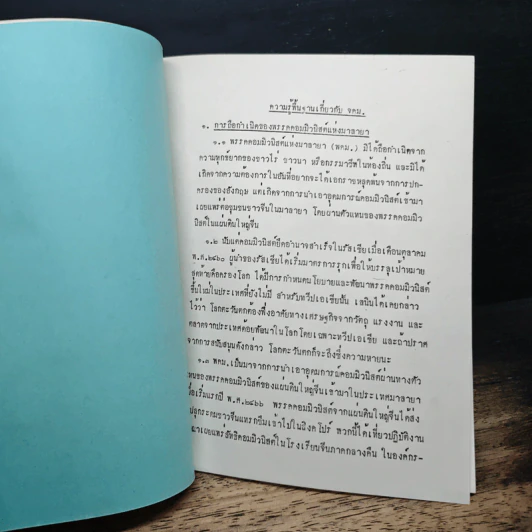 ความรู้พื้นฐานเกี่ยวกับ จคม.
๑. การถือกำเนิดของพรรคคอมมิวนิสต์แห่งมาลายา
๑.๑ พรรคคอมมิวนิสต์แห่งมาลายา (พคม.) มิได้ถือกำเนิดจาก
ความทุกข์ยากของชาวไร่ ชาวนา หรือกรรมาชีพในท้องถิ่น และมิได้
เกิดจากความต้องการในอันที่อยากจะได้เอกราชหลุดพ้นจากการปก-
ครองของอังกฤษ แต่เกิดจากการนำเอาอุดมการณ์คอมมิวนิสต์เข้ามา
เผยแพร่ต่อชุมชนชาวจีนในมาลายา โดยผ่านตัวแทนของพรรคคอมมิว
นิสต์ในแผ่นดินใหญ่จีน
๑.๒ นับแต่คอมมิวนิสต์ยึดอำนาจสำเร็จในรัสเซียเมื่อเดือนตุลาคม
พ.ศ.๒๔๖๐ ผู้นำของรัสเซียได้เริ่มมาตรการรุกเพื่อให้บรรลุเป้าหมาย
สุดท้ายคือครองโลก ได้มีการกำหนดนโยบายและพัฒนาพรรคคอมมิวนิสต์
ขึ้นใหม่ในประเทศที่ยังไม่มี สำหรับทวีปเอเซียนั้น เลนินได้เคยกล่าว
ไว้ว่า โลกตะวันตกต้องพึ่งอาศัยทางเศรษฐกิจจากวัตถุ แรงงาน และ
ตลาดจากประเทศด้อยพัฒนาในโลกโดยเฉพาะทวีปเอเซีย และถ้าปราศ
จากการสนับสนุนดังกล่าว โลกตะวันตกก็จะถึงซึ่งความหายนะ
๑.๓ พคม.เป็นมาจากการนำเอาอุดมการณ์คอมมิวนิสต์ผ่านทางตัว
แทนของพรรคคอมมิวนิสต์ของแผ่นดินใหญ่จีนเข้ามาในประเทศมาลายา
เมื่อเริ่มแรกปี พ.ศ.๒๔๖๖ พรรคคอมมิวนิสต์จากแผ่นดินใหญ่จีนได้ส่ง
ปลุกระดมชาวจีนแทรกซึมเข้าไปในสิงคโปร์ พวกนี้ได้เที่ยวปฏิบัติงาน
เผยแพร่ลัทธิคอมมิวนิสต์ในโรงเรียนจีนภาคกลางคืน ในองค์กร-